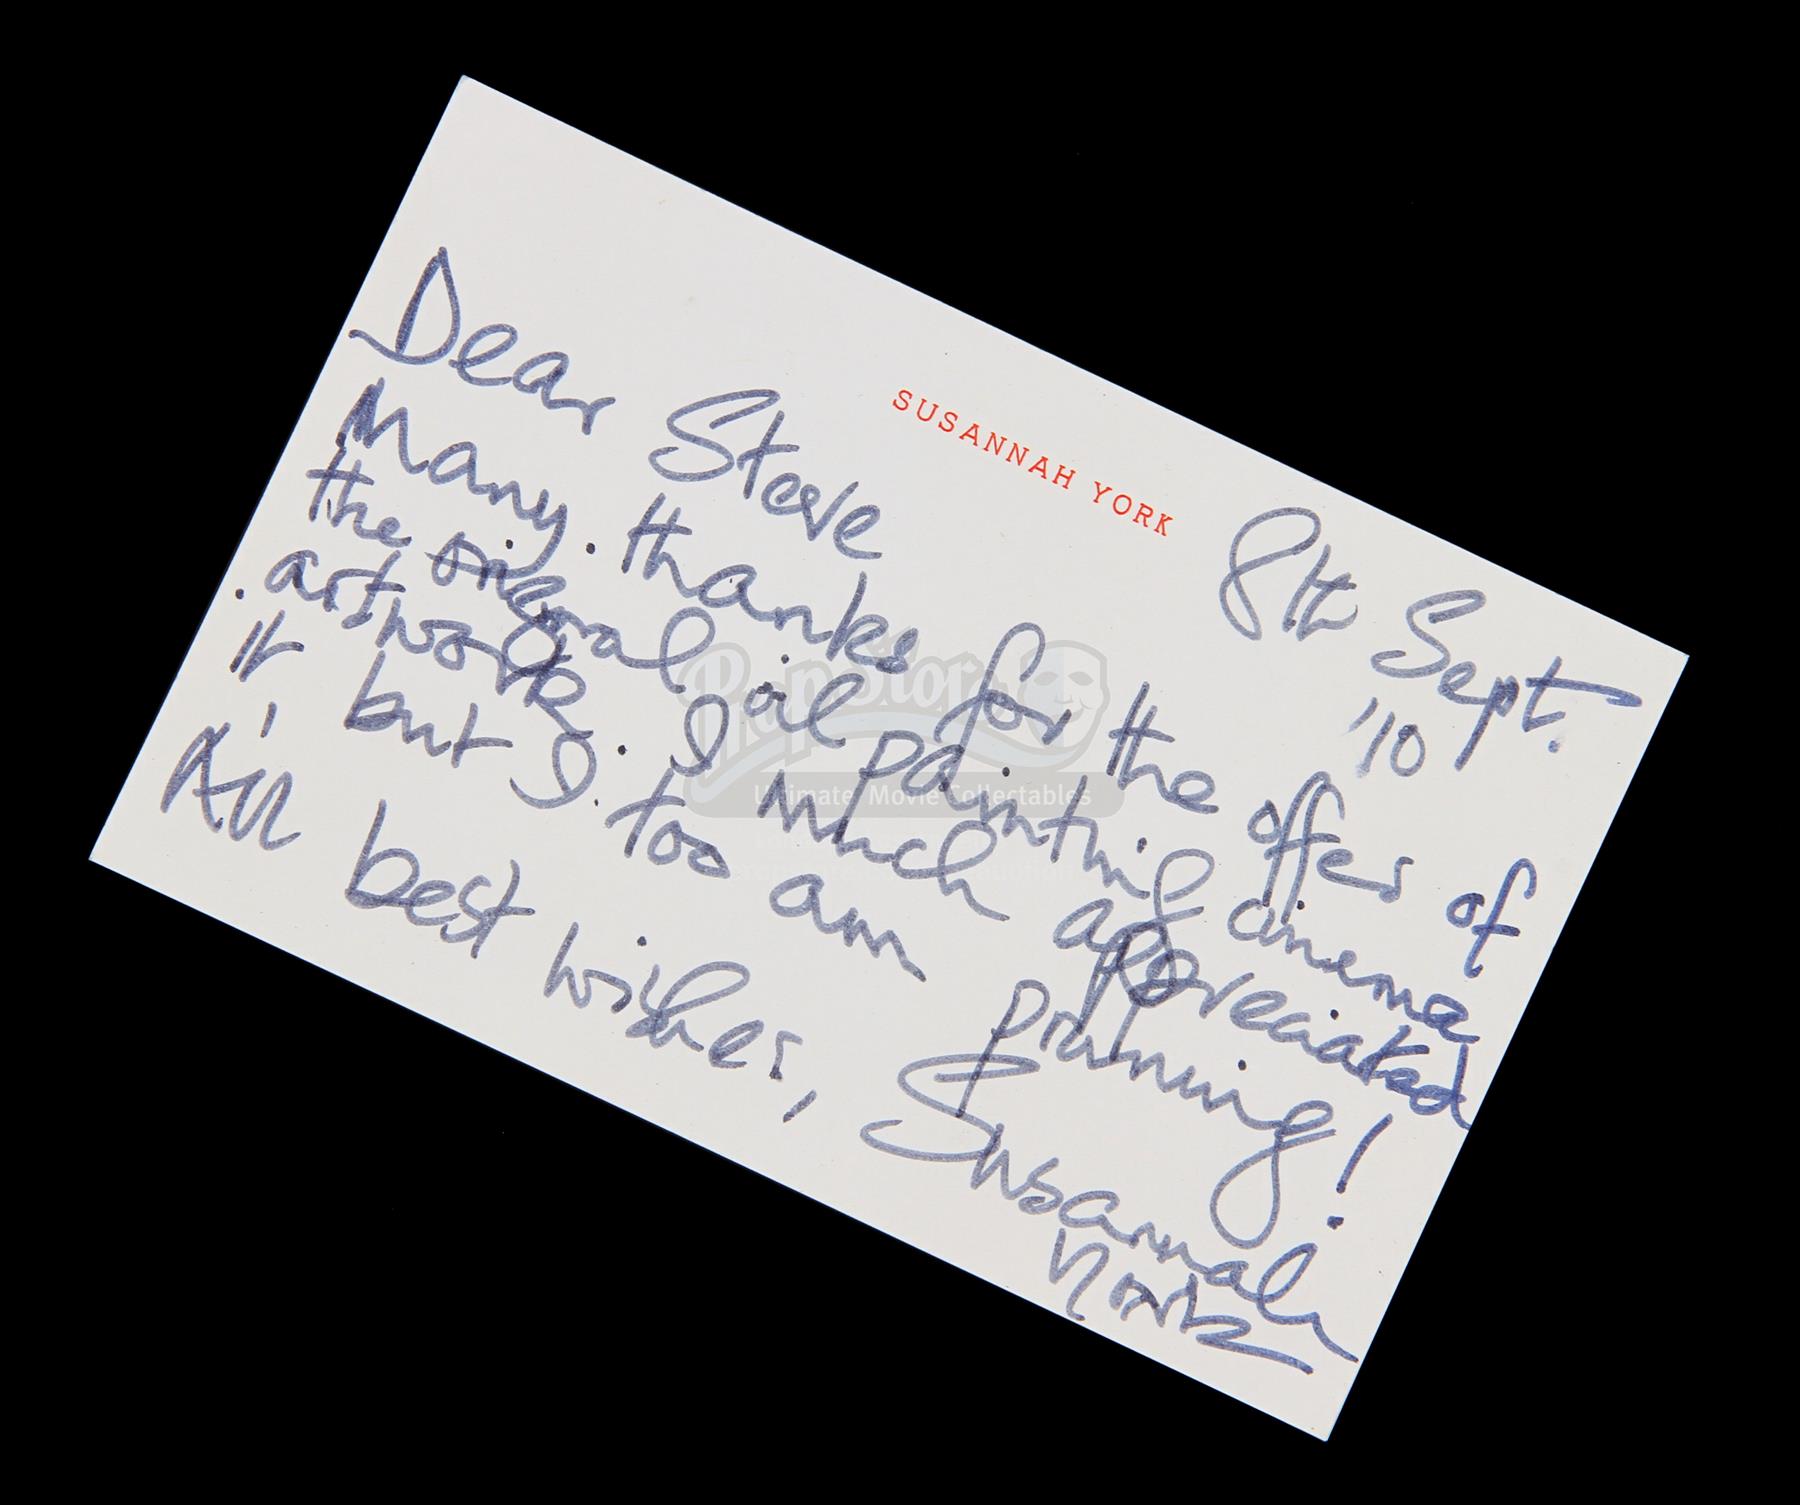 SUSANNAH YORK
8th Sept.
'10
Dear Steve
Many thanks for the offer of
the original oil painting cinema
artwork. I much appreciated
it, but I too am pruning!
All best wishes, Susannah
York
PropStore
Ultimate Movie Collectables